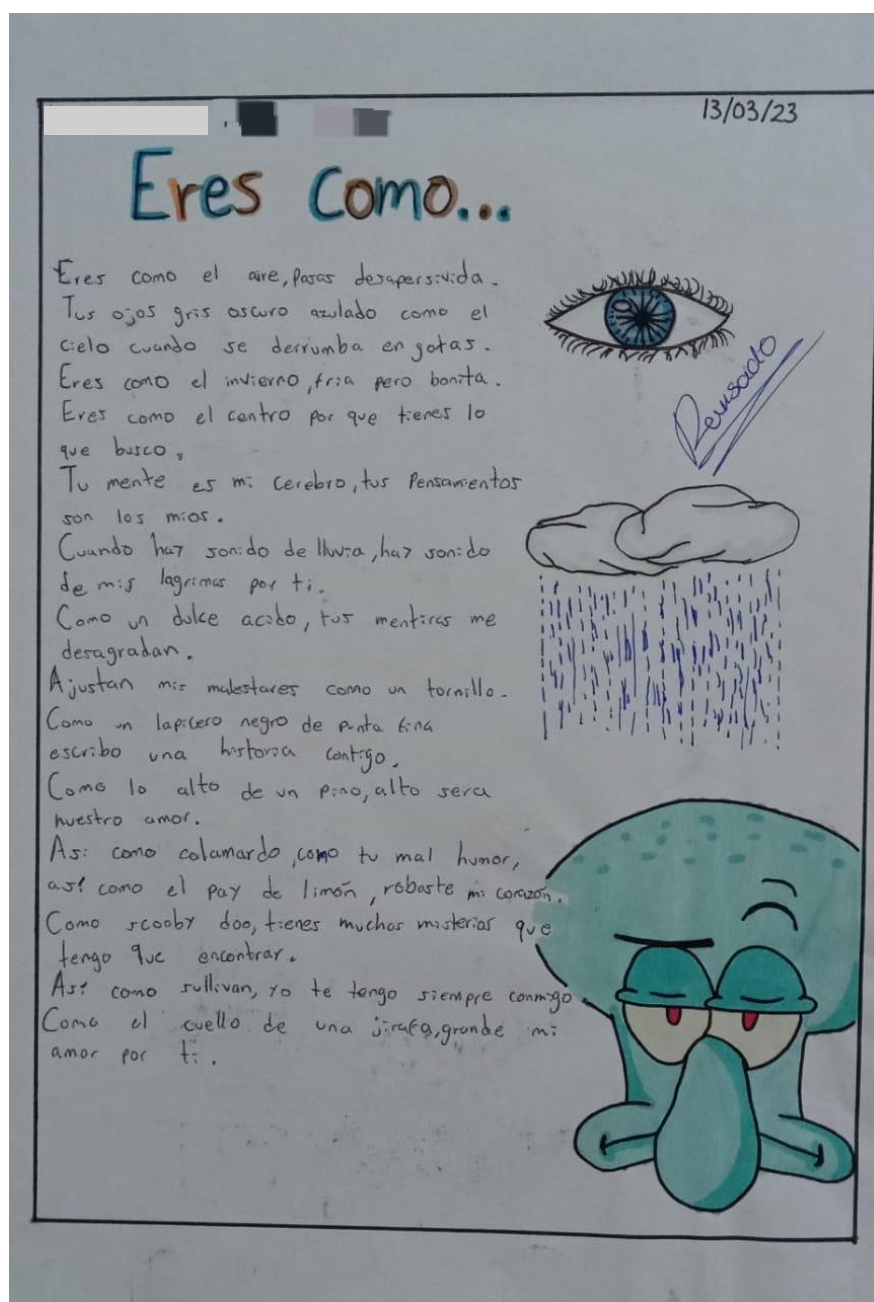 13/03/23
Eres Como...
Eres como el aire, pasas desapersivida.
Tus ojos gris oscuro azulado como el
cielo cuando se derrumba en gotas.
Eres como el invierno, fria pero bonita.
Eres como el centro por que tienes lo
que busco,
Tu mente es mi cerebro, tus pensamientos
son los mios.
Cuando hay sonido de lluvia, hay sonido
de mis lagrimas por ti.
Como un dulce acido, tus mentiras me
desagradan.
Ajustan mis malestares como un tornillo.
Como un lapicero negro de punta fina
escribo una historia contigo.
Como lo alto de un pino, alto sera
nuestro amor.
Asi como calamardo, como tu mal humor,
así como el pay de limón, robaste mi corazón.
Como scooby doo, tienes muchos misterios que
tengo que encontrar.
Así como sullivan, yo te tengo siempre conmigo
Como el cuello de una jirafa, grande mi
amor por ti.
Revisado